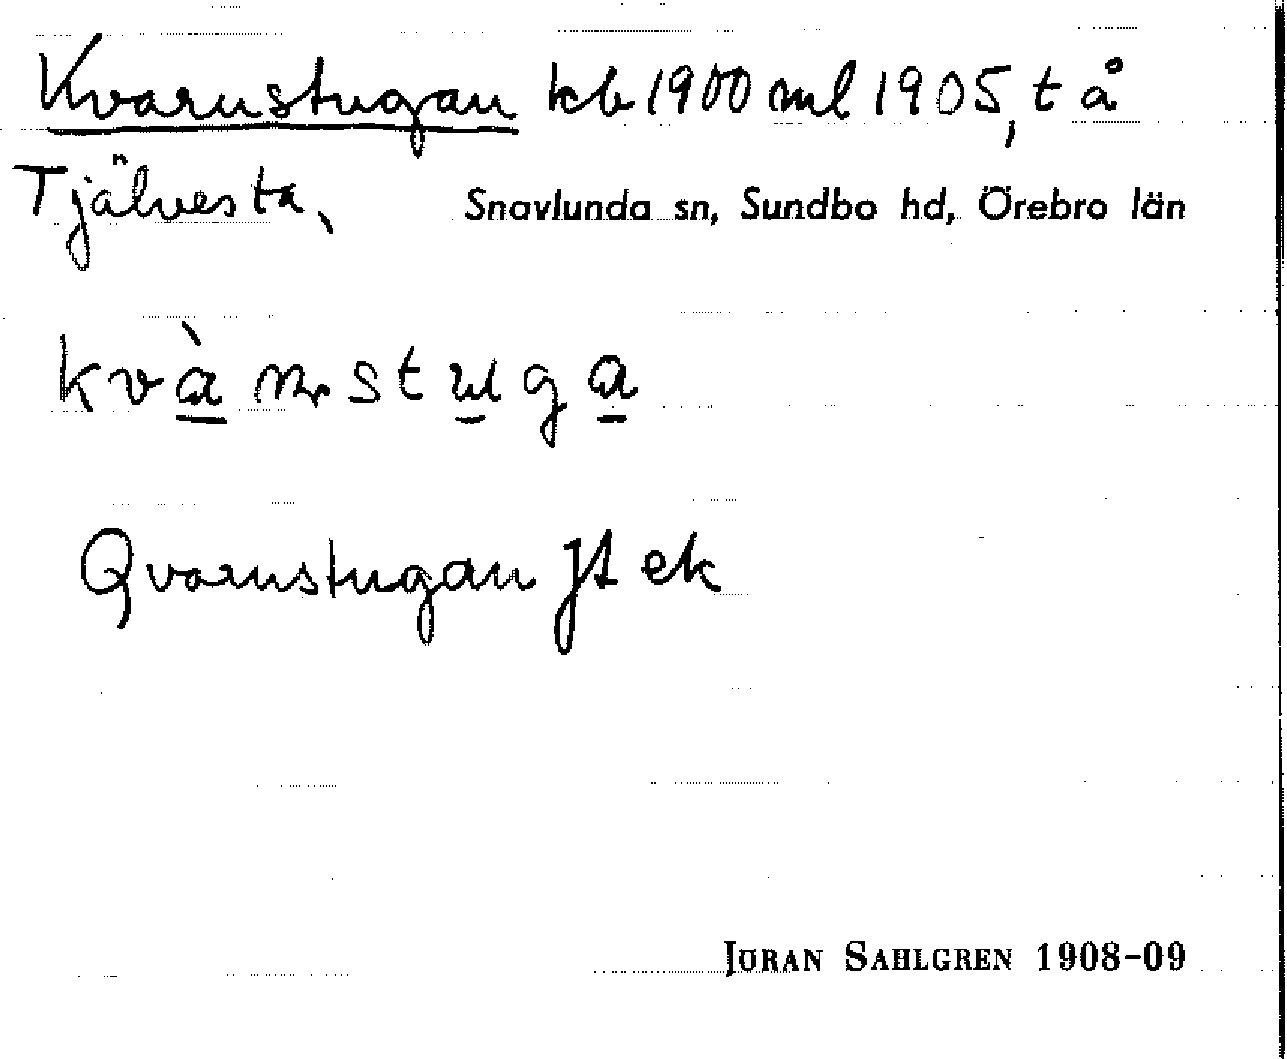 Kvarnstugan kb 1900 ml 1905, t å
Tjälvesta, Snavlunda sn, Sundbo hd, Örebro län
kvà̱ṇstu̱ga̱
Qvarnstugan JA ek
JÖRAN SAHLGREN 1908-09